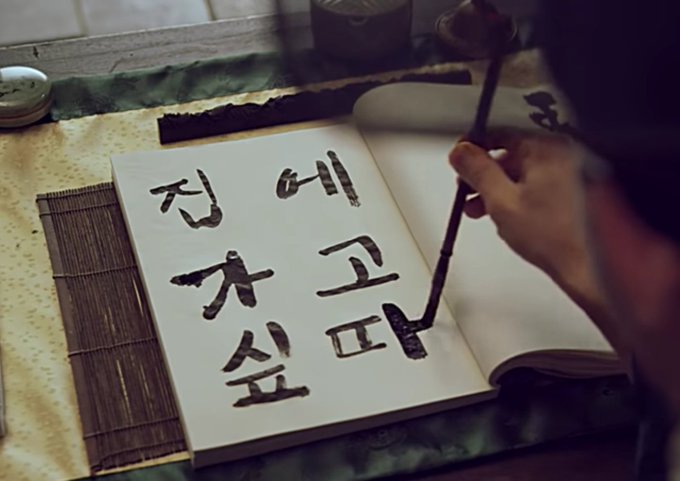 집에
가고
싶다